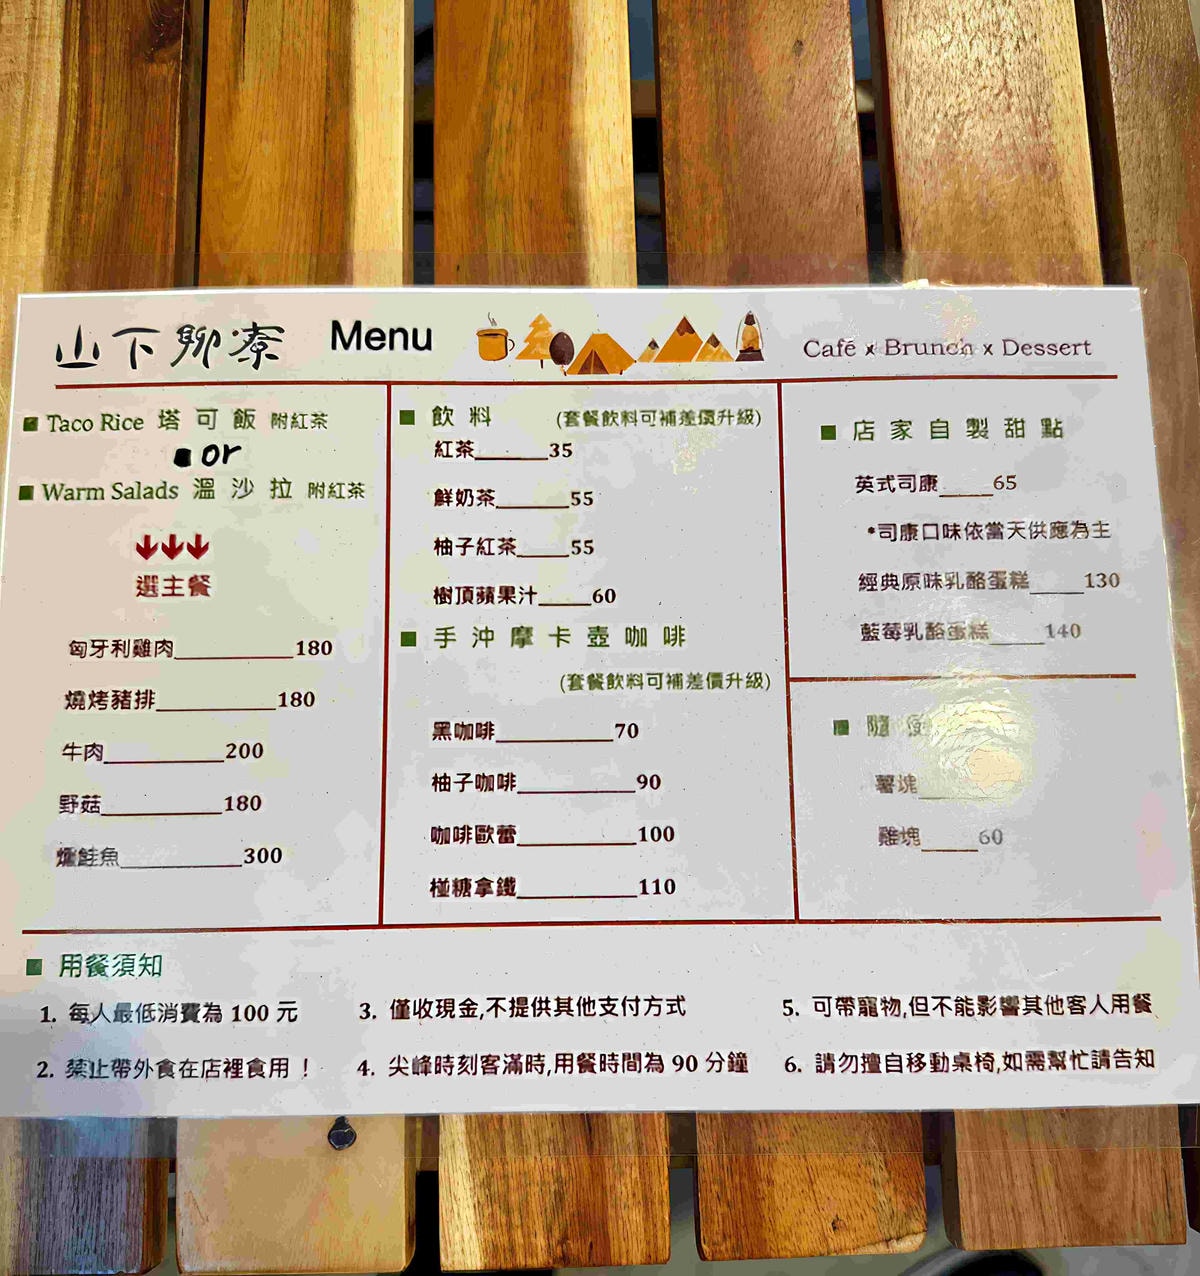 山下聊寮 Menu
Café x Brunch x Dessert
■ Taco Rice 塔可飯 附紅茶
■ or
■ Warm Salads 溫沙拉 附紅茶
選主餐
匈牙利雞肉____________180
燒烤豬排____________180
牛肉____________200
野菇____________180
燻鮭魚____________300
■ 飲料 (套餐飲料可補差價升級)
紅茶_______35
鮮奶茶_______55
柚子紅茶_____55
樹頂蘋果汁_____60
■ 手沖摩卡壺咖啡
(套餐飲料可補差價升級)
黑咖啡____________70
柚子咖啡____________90
咖啡歐蕾____________100
椪糖拿鐵____________110
■ 店家自製甜點
英式司康_____65
*司康口味依當天供應為主
經典原味乳酪蛋糕_____130
藍莓乳酪蛋糕_____140
■ 隨
薯塊
雞塊_____60
■ 用餐須知
1. 每人最低消費為 100 元
2. 禁止帶外食在店裡食用！
3. 僅收現金,不提供其他支付方式
4. 尖峰時刻客滿時,用餐時間為 90 分鐘
5. 可帶寵物,但不能影響其他客人用餐
6. 請勿擅自移動桌椅,如需幫忙請告知